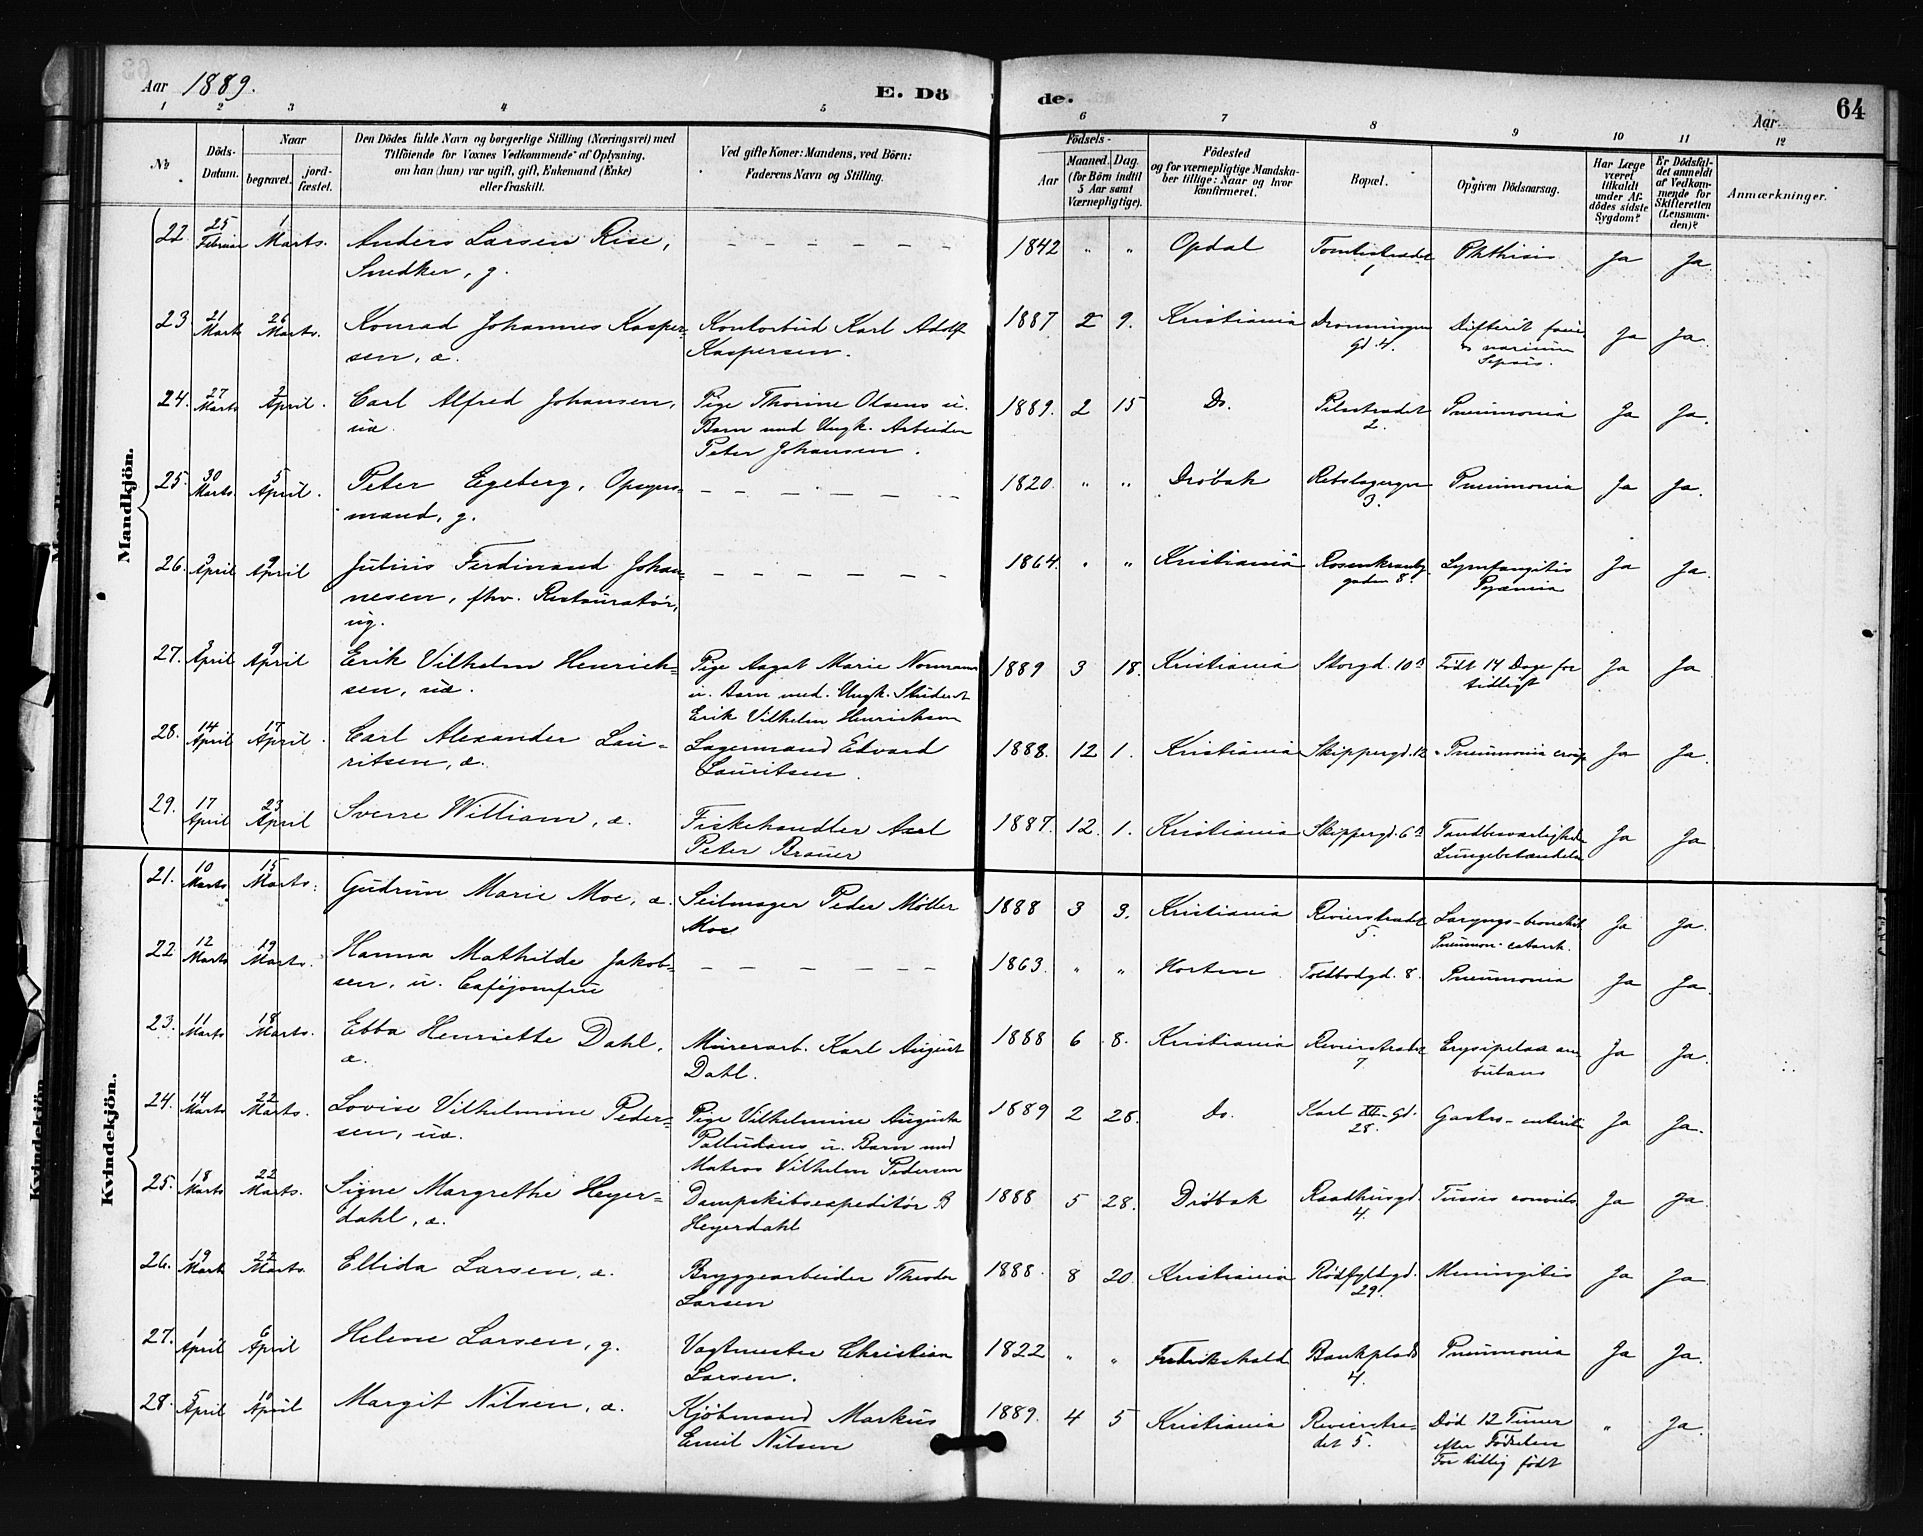 Aar 1889.
E. Dö
de.
Aar
64
1 2 3 4 5 6 7 8 9 10 11 12
No
Döds-Datum.
Naar
begravet.
jordfæstet.
Den Dödes fulde Navn og borgerlige Stilling (Næringsvei) med
Tilföiende for Voxnes Vedkommende af Oplysning,
om han (hun) var ugift, gift, Enkemand (Enke)
eller fraskilt.
Ved gifte Koner: Mandens, ved Börn:
Faderens Navn og Stilling.
Födsels-
Aar
Maaned. Dag.
(for Börn indtil
5 Aar samt
Værnepligtige).
Födested
og for værnepligtige Mandskaber tillige: Naar og hvor
konfirmeret.
Bopæl.
Opgiven Dödsaarsag.
Har Læge
været
tilkaldt
under Afdödes sidste
Sygdom?
Er Dödsfaldet anmeldt
af Vedkommende for
Skifteretten
(Lensmanden)?
Anmærkninger.
Mandkjön.
22. 25 Februar 1 Marts. Anders Larsen Rise, 1842 " " Opdal Tomtestradet Phthisis Ja Ja
Snedker, g. 1
23 21 Marts 26 Marts. Konrad Johannes Kasper- Kontorbud Karl Adolf 1887 2 9. Kristiania Dronningen Difterit Ja Ja.
sen, æ. Kaspersen. gd. 4. Sepsis.
24. 27 Marts 2 April. Carl Alfred Johansen, Pige Thorine Olsens u. 1889. 2 15 Do. Pilestradet Pneumonia Ja Ja.
uæ. Barn med Ungk. Arbeider 2.
Peter Johansen.
25. 30 Marts. 5 April. Peter Egeberg, Opsyns- 1820. " " Drøbak Rebslagergn Pneumonia Ja Ja.
mand, g. 3.
26. 3 April 9 April Julius Ferdinand Johan- 1864. " " Kristiania Rosenkrantz Lymfangitis Ja Ja.
nesen, fhv. Restauratør, gaden 8. Pyæmia
ug.
27. 3 April 9 April Erik Vilhelm Henrik- Pige Aagot Marie Normann 1889 3 18. Kristiania Storgd. 10 B Født 14 Dage for Ja Ja
sen, uæ. u. Barn med. Ungk. Student tidligt
Erik Vilhelm Henriksen
28. 14 April 17 April. Carl Alexander Lau- Lagermand Edvard 1888. 12 1. Kristiania Skippergd. 12 Pneumonia croup Ja Ja.
ritsen, æ. Lauritsen.
29. 17 April 23 April Sverre William, æ. Fiskehandler Axel 1887. 12. 1. Kristiania Skippergd. 6 B Tandbesværligheder Ja Ja
Peter Brauer Lungebetændelse
Kvindekjön.
21. 10 Marts 15 Marts. Gudrun Marie Moe, æ. Seilmager Peder Møller 1888 3 3. Kristiania Revierstradet Laryngo-bronchit Ja Ja.
Moe 5. Pneumon. catarrh.
22 12 Marts 19 Marts. Hanna Mathilde Jakob- 1863. " " Horten Toldbodgd. 8. Pneumonia Ja Ja.
sen, u. Caféjomfru
23. 11 Marts 18 Marts. Ebba Henriette Dahl, Murerarb. Karl August 1888 6 8. Kristiania Revierstradet Erysipelas am Ja Ja.
æ. Dahl. 7. bulans
24. 14 Marts 22 Marts. Lovise Vilhelmine Peder- Pige Vilhelmine Augusta 1889 2 28. Do. Karl XII-gd. Gastro-enteritis Ja Ja.
sen, uæ. Palludans u. Barn med 28.
Matros Vilhelm Pedersen
25. 18 Marts 22 Marts. Signe Margrethe Heyer- Dampskibsexpeditør B 1888 5 28. Drøbak Raadhusgd. Tussis convuls. Ja Ja.
dahl, æ. Heyerdahl 4.
26. 19 Marts 22 Marts. Ellida Larsen, æ. Bryggearbeider Theodor 1888. 8 20. Kristiania Rødfyldgd. Meningitis Ja Ja
Larsen 29.
27. 1 April 6 April Helene Larsen, g. Vagtmester Christian 1822 " " Fredrikshald Bankplads Pneumonia Ja Ja.
Larsen. 4.
28. 5 April 10 April Margit Nilsen, æ. Kjøbmand Markus 1889. 4 5 Kristiania Revierstra- Død 12 Timer " Ja.
Emil Nilsen det 5. efter Fødselen
For tidlig født